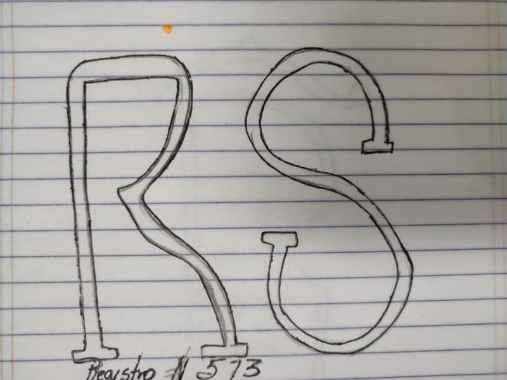 RS
Registro # N 573